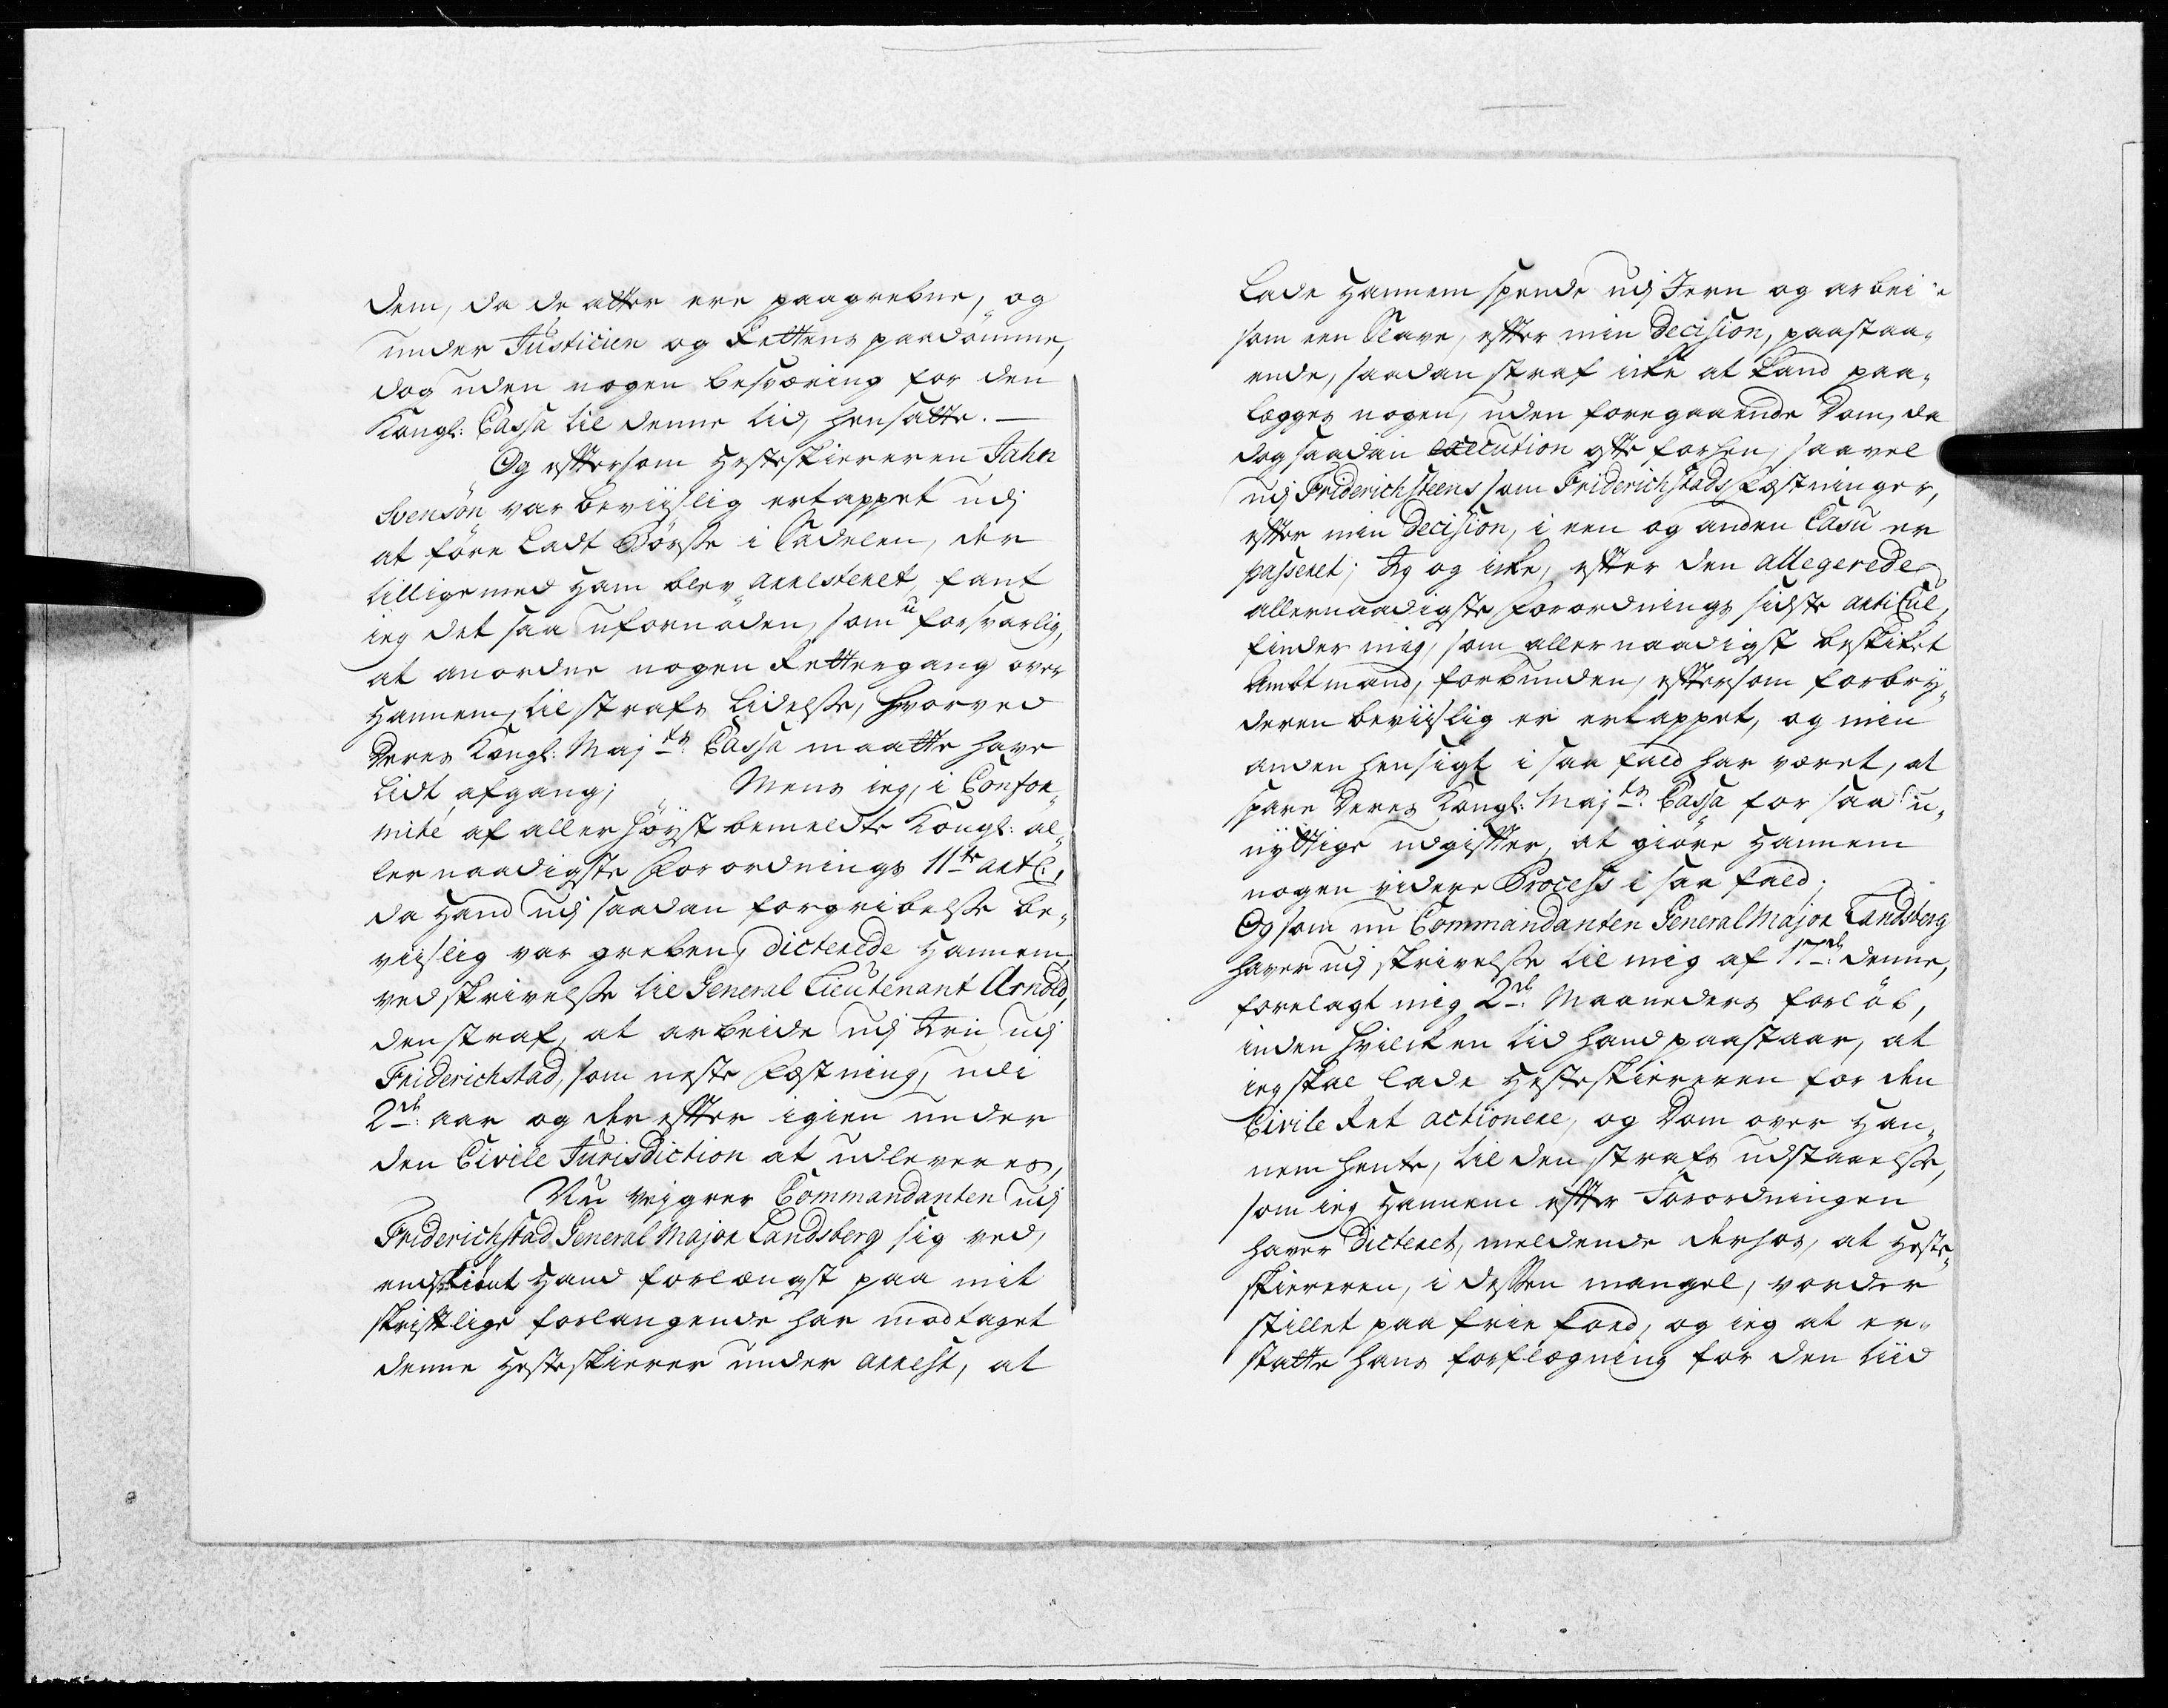 dem, da de atter ere paagrebne, og
under Justicien og Rettens paadömme,
dog uden nogen besværing for den
Kongl: Cassa til denne tid, hensatte. —
Og eftersom Hesteskiereren Jahn
Svensön var beviislig ertappet udj
at före Ladt Börsse i Sadelen, der
tilligemed ham blev arresteret, fant
ieg det saa ufornöden, som uforsvarlig,
at anordne nogen Rettergang over
Hannem, til strafs Lidelsse, hvorved
Deres Kongl: Majts: Cassa maatte have
Lidt afgang; Mens ieg, i Confor„
mité af aller höyst bemeldte Kongl: al„
lernaadigste Forordnings 11te artl:,
da Hand udj saadan forgribelsse be„
viislig var greben, dicterede Hannem,
ved skrivelsse til General Lieutenant Arnold,
den straf, at arbeide udj Jern udj
Friderichstad, som neste Fæstning, udi
2de: aar og der efter igien under
den Civile Jurisdiction at udleveres,
Nu veigrer Commandanten udj
Friderichstad General Major Landsberg sig ved,
endskiönt Hand forlængst paa mit
skriftlige forlangende har modtaget
denne Hesteskierer under arrest, at
Lade Hannem spende udj Jern og arbeide
som een Slave, efter min Decision, paastaa„
ende, saadan straf icke at kand paa„
legges nogen, uden foregaaende Dom, da
dog saadan Execution ofte forhen, saavel
udj Friderichsteens som Friderichstads Fæstninger,
efter min Decision, i een og anden Casu er
passeret; Jeg og icke, efter den allegerede
allernaadigste Forordnings sidste articul,
finder mig, som allernaadigst beskiket
Amtmand, forbunden, eftersom forbry„
deren beviislig er ertappet, og min
anden hensigt i saa fald har været, at
spare Deres Kongl: Majts: Cassa for saa u„
nyttige udgifter, at giöre Hannem
nogen videre Process i saa fald;
Og som nu Commandanten General Major Landsberg
haver udj skrivelsse til mig af 17de: denne,
forelagt mig 2de: Maaneders forlöb,
inden hvilcken tid hand paastaar, at
ieg skal lade Hesteskiereren for den
Civile Ret actionere, og Dom over Han„
nem hente, til den strafs udstaaelsse,
som ieg Hannem efter Forordningen
haver dicteret, meldende derhos, at Heste„
skiereren, i dessen mangel, vorder
stillet paa frie food, og ieg at er„
statte hans forflægning for den tiid